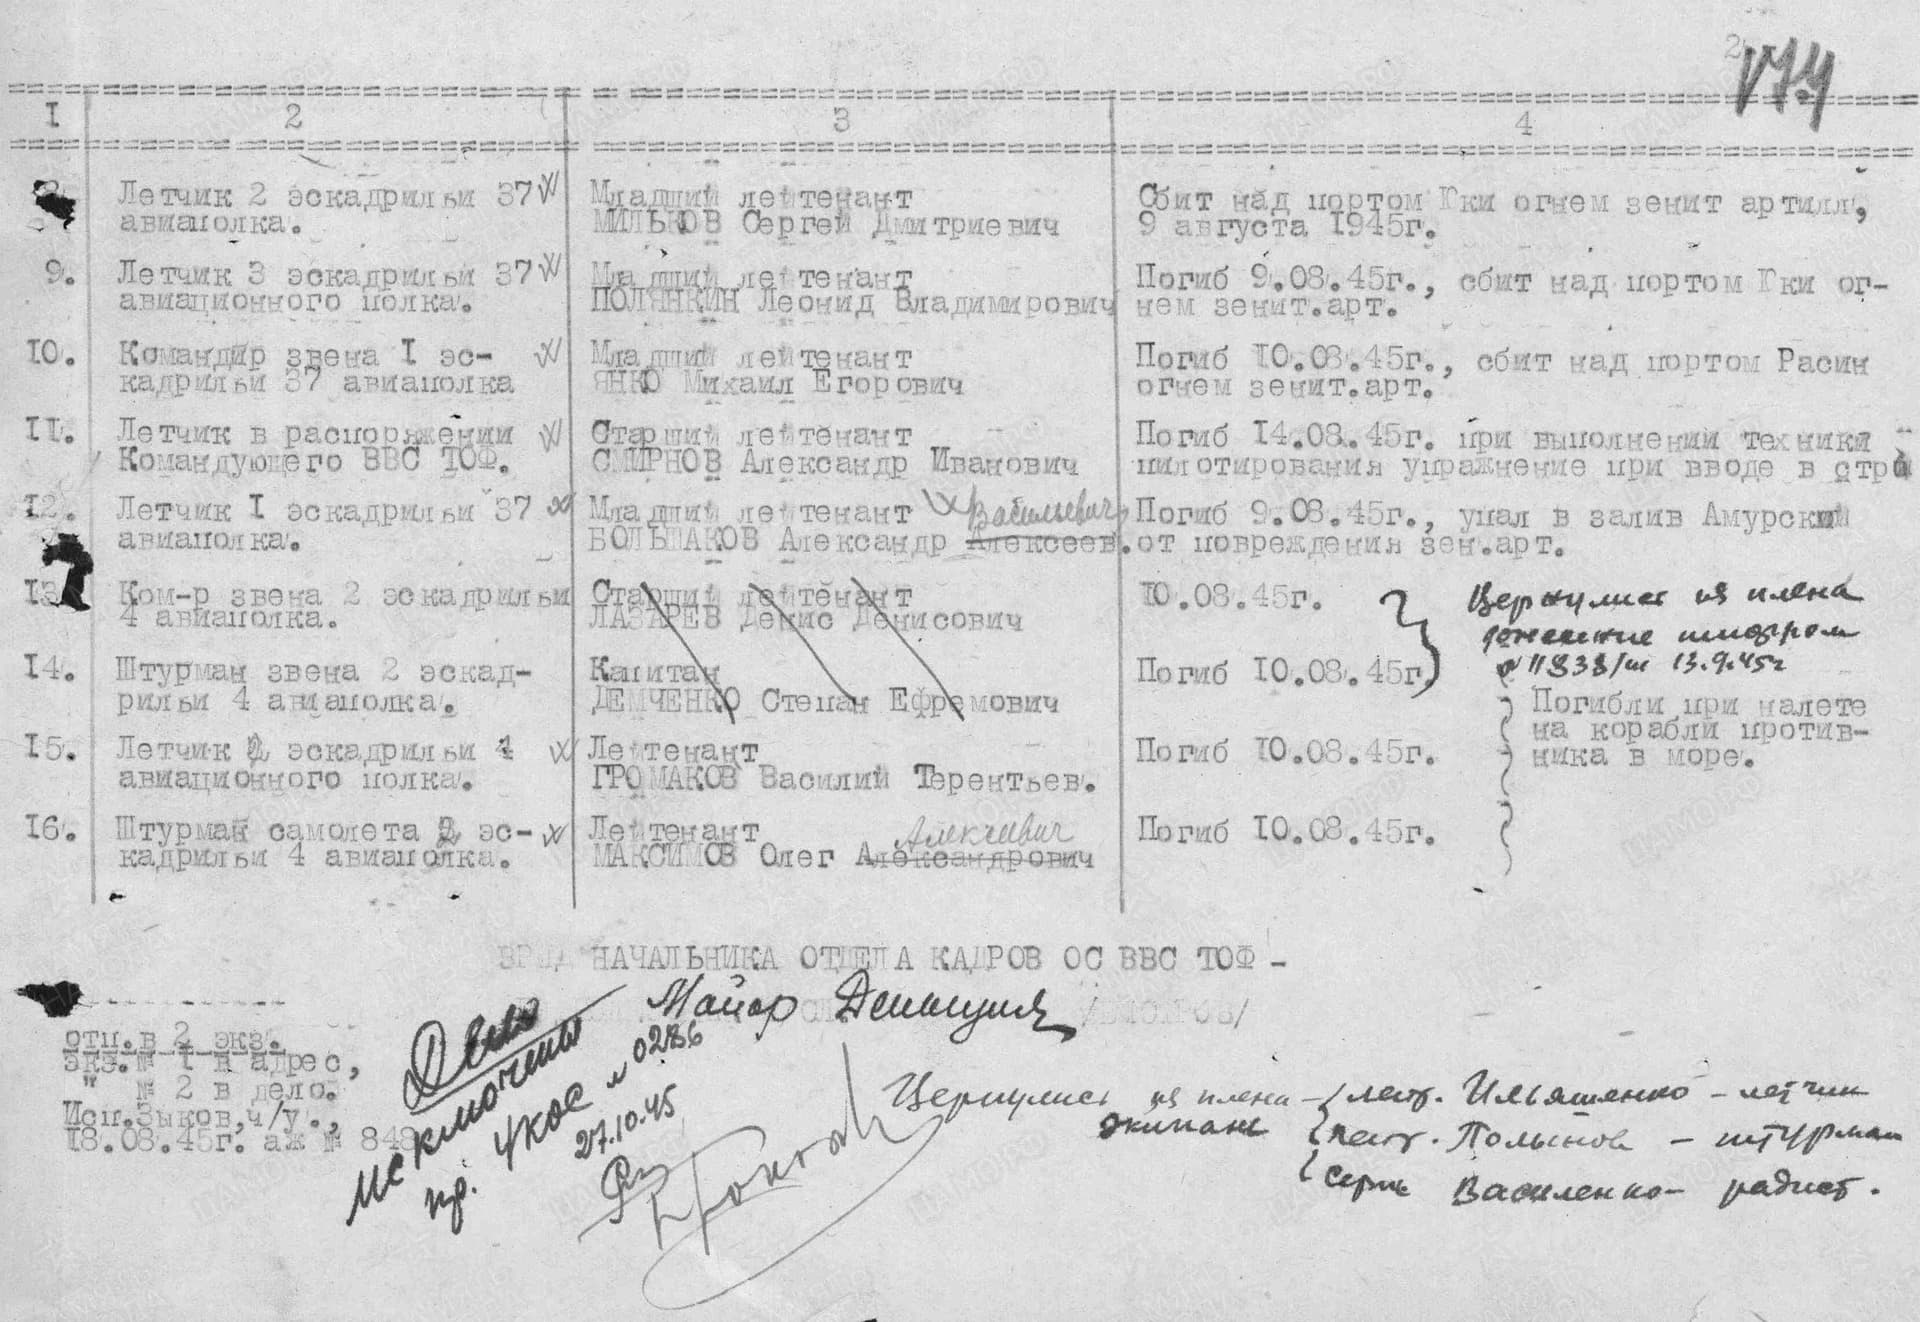 174
1 2 3 4
8. Летчик 2 эскадрильи 37 Младший лейтенант Сбит над портом Юки огнем зенит артилл,
авиаполка. МИЛЬКОВ Сергей Дмитриевич 9 августа 1945г.
9. Летчик 3 эскадрильи 37 Младший лейтенант Погиб 9.08.45г., сбит над портом Юки ог-
авиационного полка. ПОЛЯНКИН Леонид Владимирович нем зенит.арт.
10. Командир звена I эс- Младший лейтенант Погиб 10.08.45г., сбит над портом Расин
кадрильи 37 авиаполка ЯНКО Михаил Егорович огнем зенит.арт.
11. Летчик в распоряжении Старший лейтенант Погиб 14.08.45г. при выполнений техники
Командующего ВВС ТОФ. СМИРНОВ Александр Иванович пилотирования упражнение при вводе в стро
12. Летчик I эскадрильи 37 Младший лейтенант Васильевич Погиб 9.08.45г., упал в залив Амурский
авиаполка. БОЛЬШАКОВ Александр Алексеев. от повреждения зен.арт.
13. Ком-р звена 2 эскадрильи Старший лейтенант 10.08.45г. Вернулись из плена
4 авиаполка. ЛАЗАРЕВ Денис Денисович шифром
14. Штурман звена 2 эскад- Капитан Погиб 10.08.45г. 11838/ш 13.9.45г
рильи 4 авиаполка. ДЕМЧЕНКО Степан Ефремович Погибли при налете
15. Летчик 2 эскадрильи 4 Лейтенант Погиб 10.08.45г. на корабли против-
авиационного полка. ГРОМАКОВ Василий Терентьев. ника в море.
16. Штурман самолета 2 эс- Лейтенант Алексеевич Погиб 10.08.45г.
кадрильи 4 авиаполка. МАКСИМОВ Олег Александрович
ВРИД НАЧАЛЬНИКА ОТДЕЛА КАДРОВ ОС ВВС ТОФ -
Майор
отп.в 2 экз.
экз.№ 1 в адрес,
" № 2 в дело.
Исп.Зыков,ч/у.,
18.08.45г. аж № 848
исключены
пр. УКОС № 0286
27.10.45
Вернулись из плена - лейт. Ильяшенко - летчик
экипаж лейт. Полынов - штурман
серж Василенко - радист.